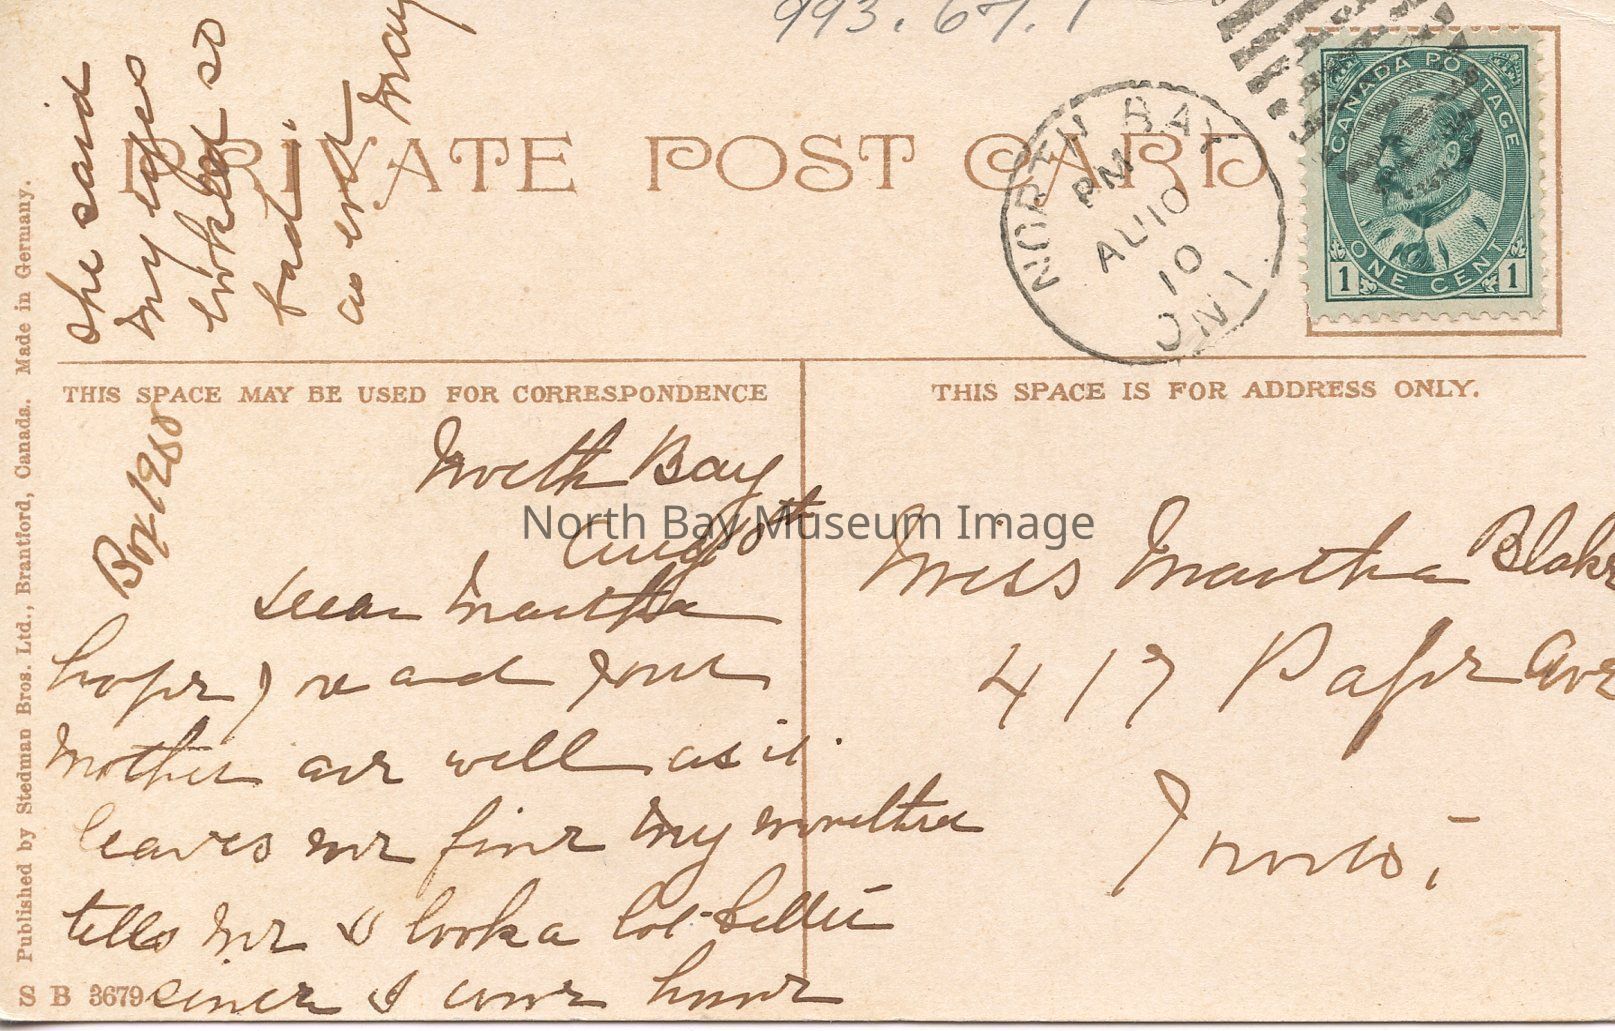 993.67.1
PRIVATE POST CARD
NORTH BAY
PM
AU 10
10
ONT
CANADA POSTAGE
ONE CENT
1 1
THIS SPACE MAY BE USED FOR CORRESPONDENCE
THIS SPACE IS FOR ADDRESS ONLY.
Box 1280
North Bay
Aug 10th
Dear Martha
hope you and your
Mother are well as it
leaves me fine My mother
tells me I look a lot better
since I come home
she said
my eyes
looked so
bad.
as ever
May
Miss Martha Blake
417 Pape Ave
Toronto
North Bay Museum Image
Published by Stedman Bros. Ltd., Brantford, Canada. Made in Germany.
S B 3679